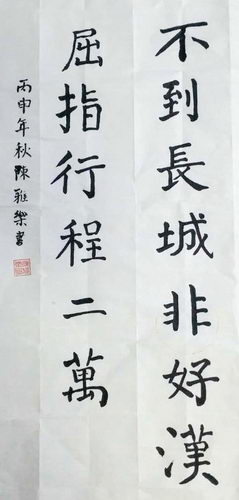 不到長城非好漢
屈指行程二萬
丙申年秋陳雅樂書